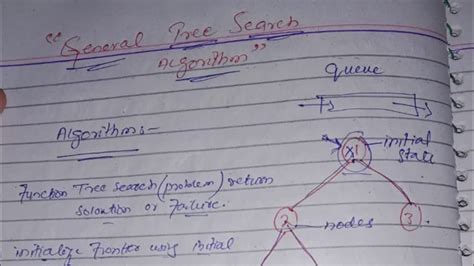 "General Tree Search
Algorithm"
Queue
Algorithms-
initial
state
Function Tree search (problem) return
Solution or Failure.
2
nodes
3
initialize Frontier using initial